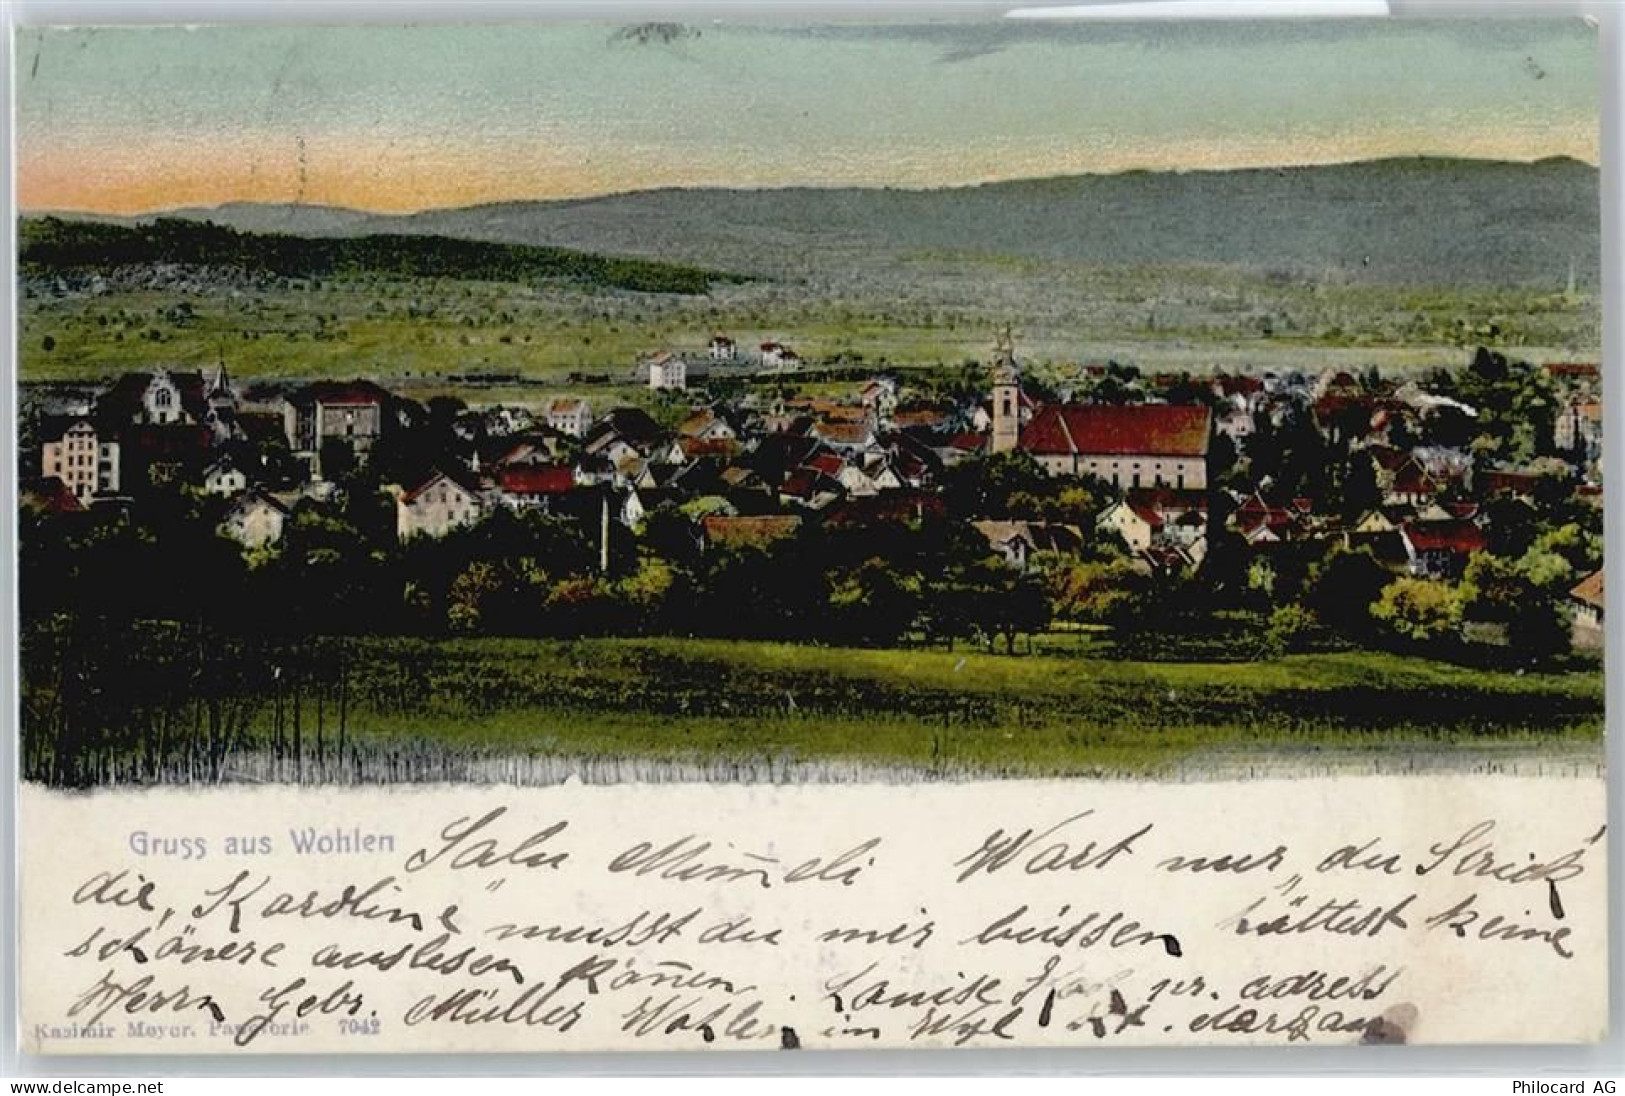 Gruss aus Wohlen
Salu Mim̄eli Wart nur, du Strick
die „Karoline“ musst du mir büssen hättest keine
schönere auslesen kön̄en. Louise pr. adress
Herrn Gebr. Müller Wohlen in Wyl Kt. Aargau
Kasimir Meyer, Papeterie 7042
www.delcampe.net
Philocard AG